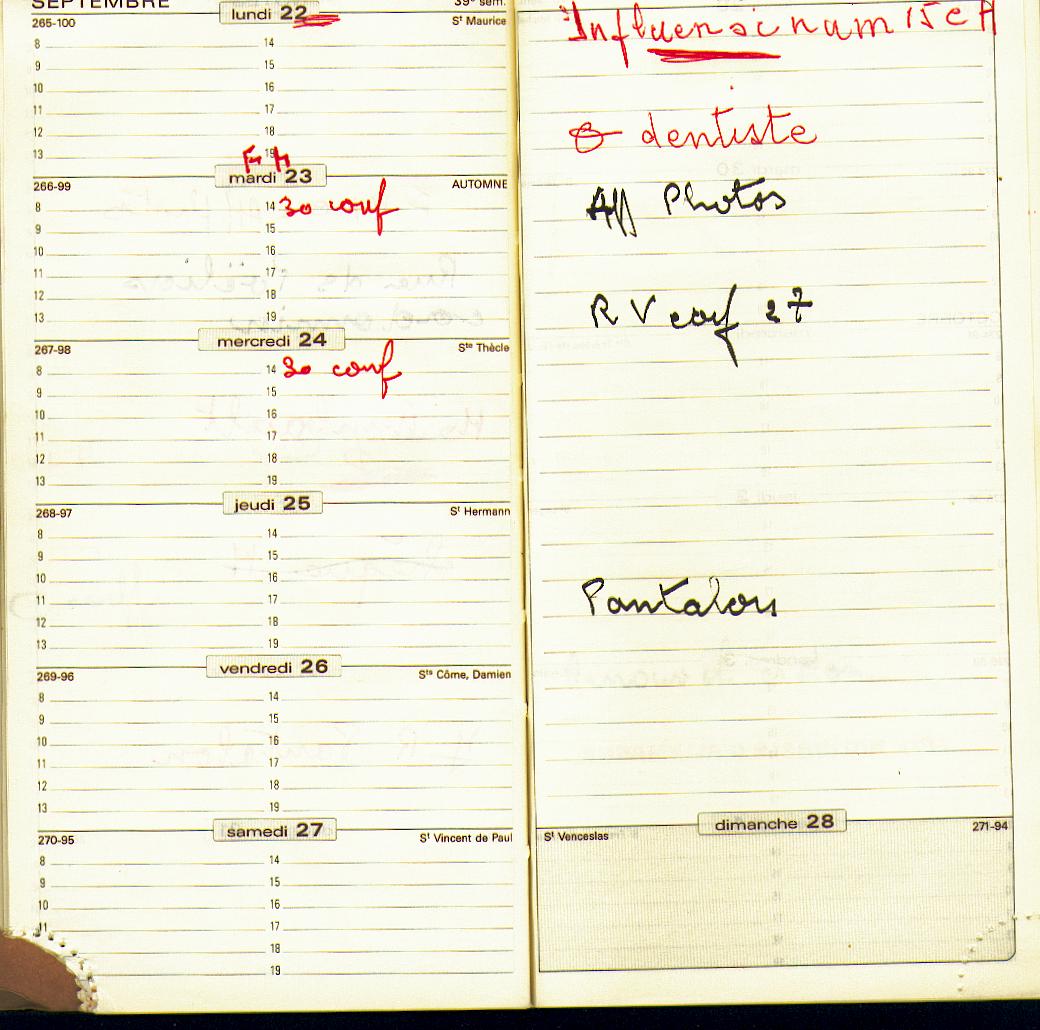 SEPTEMBRE
39e sem.
lundi 22
265-100
St Maurice
8 14
9 15
10 16
11 17
12 18
13 19
mardi 23
266-99
AUTOMNE
8 14 30 conf
9 15
10 16
11 17
12 18
13 19
mercredi 24
267-98
Ste Thècle
8 14 30 conf
9 15
10 16
11 17
12 18
13 19
jeudi 25
268-97
St Hermann
8 14
9 15
10 16
11 17
12 18
13 19
vendredi 26
269-96
Sts Côme, Damien
8 14
9 15
10 16
11 17
12 18
13 19
samedi 27
270-95
St Vincent de Paul
8 14
9 15
10 16
11 17
18
19
Influensinum 15 cH
dentiste
Aff Photos
R V conf 27
Pantalon
dimanche 28
St Venceslas
271-94